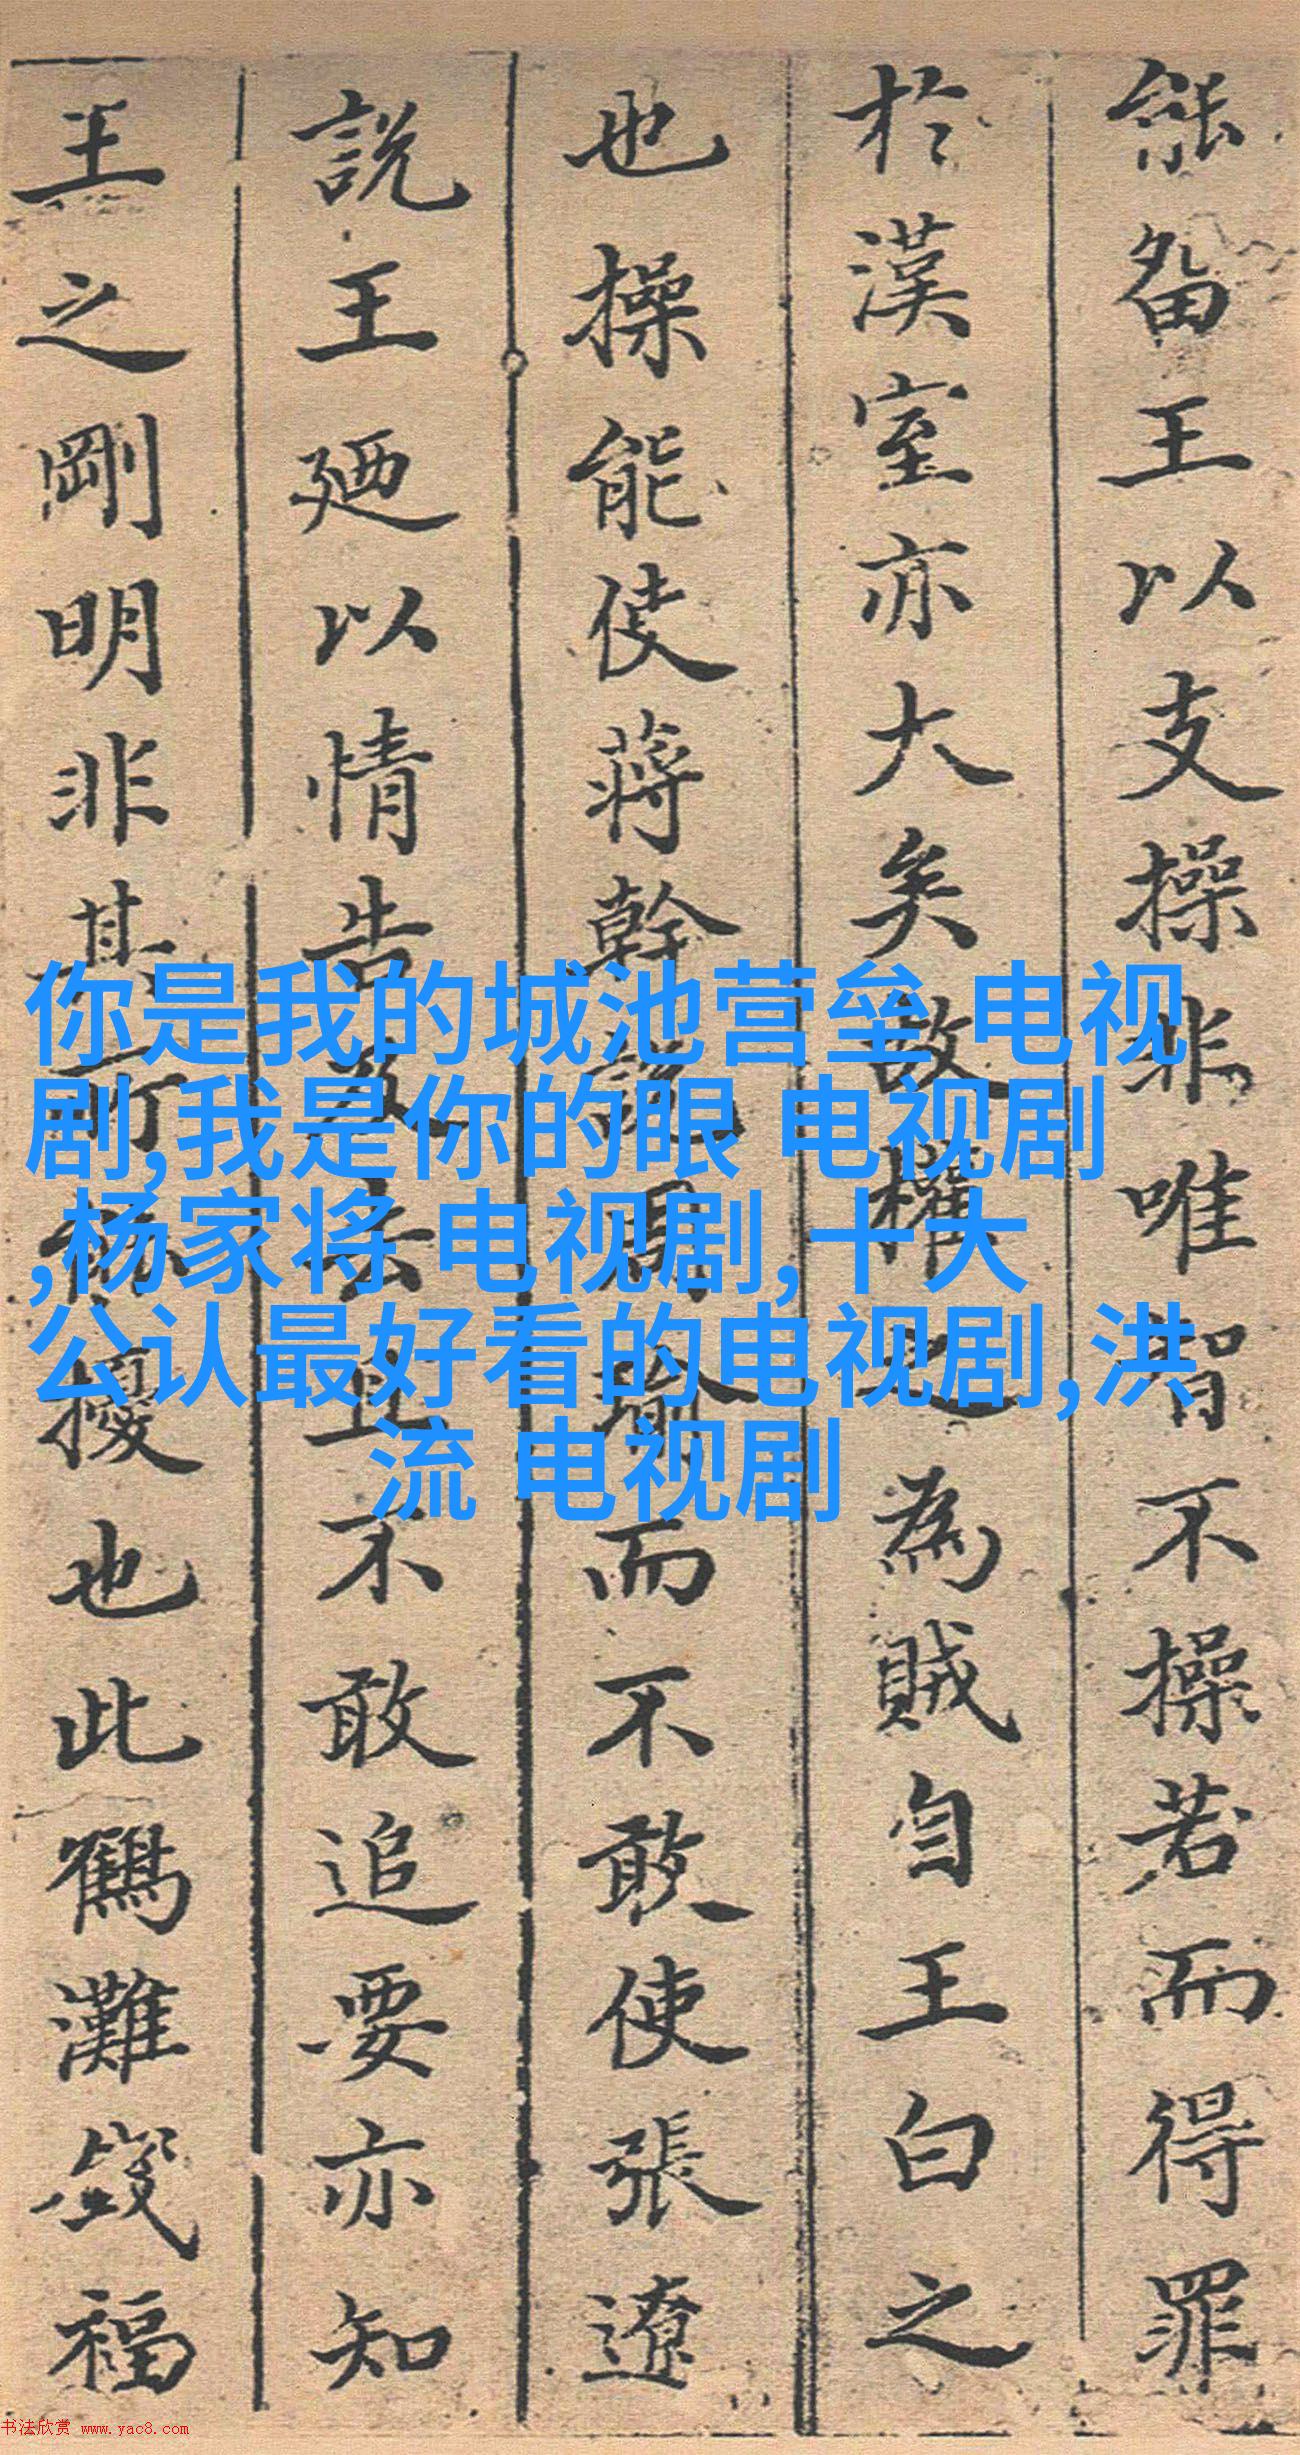 能畱王以支操非唯智不操若而得罪
於漢室亦大矣故權之為賊自王白之
也操能使蒋幹說周瑜而不敢使張遼
說王廼以情告
不敢追要亦知
王之剛明非其所
擾也此鶴灘
福
你是我的城池营垒 电视
剧,我是你的眼 电视剧
,杨家将 电视剧,十大
公认最好看的电视剧,洪
流 电视剧
书法欣赏 www.yac8.com